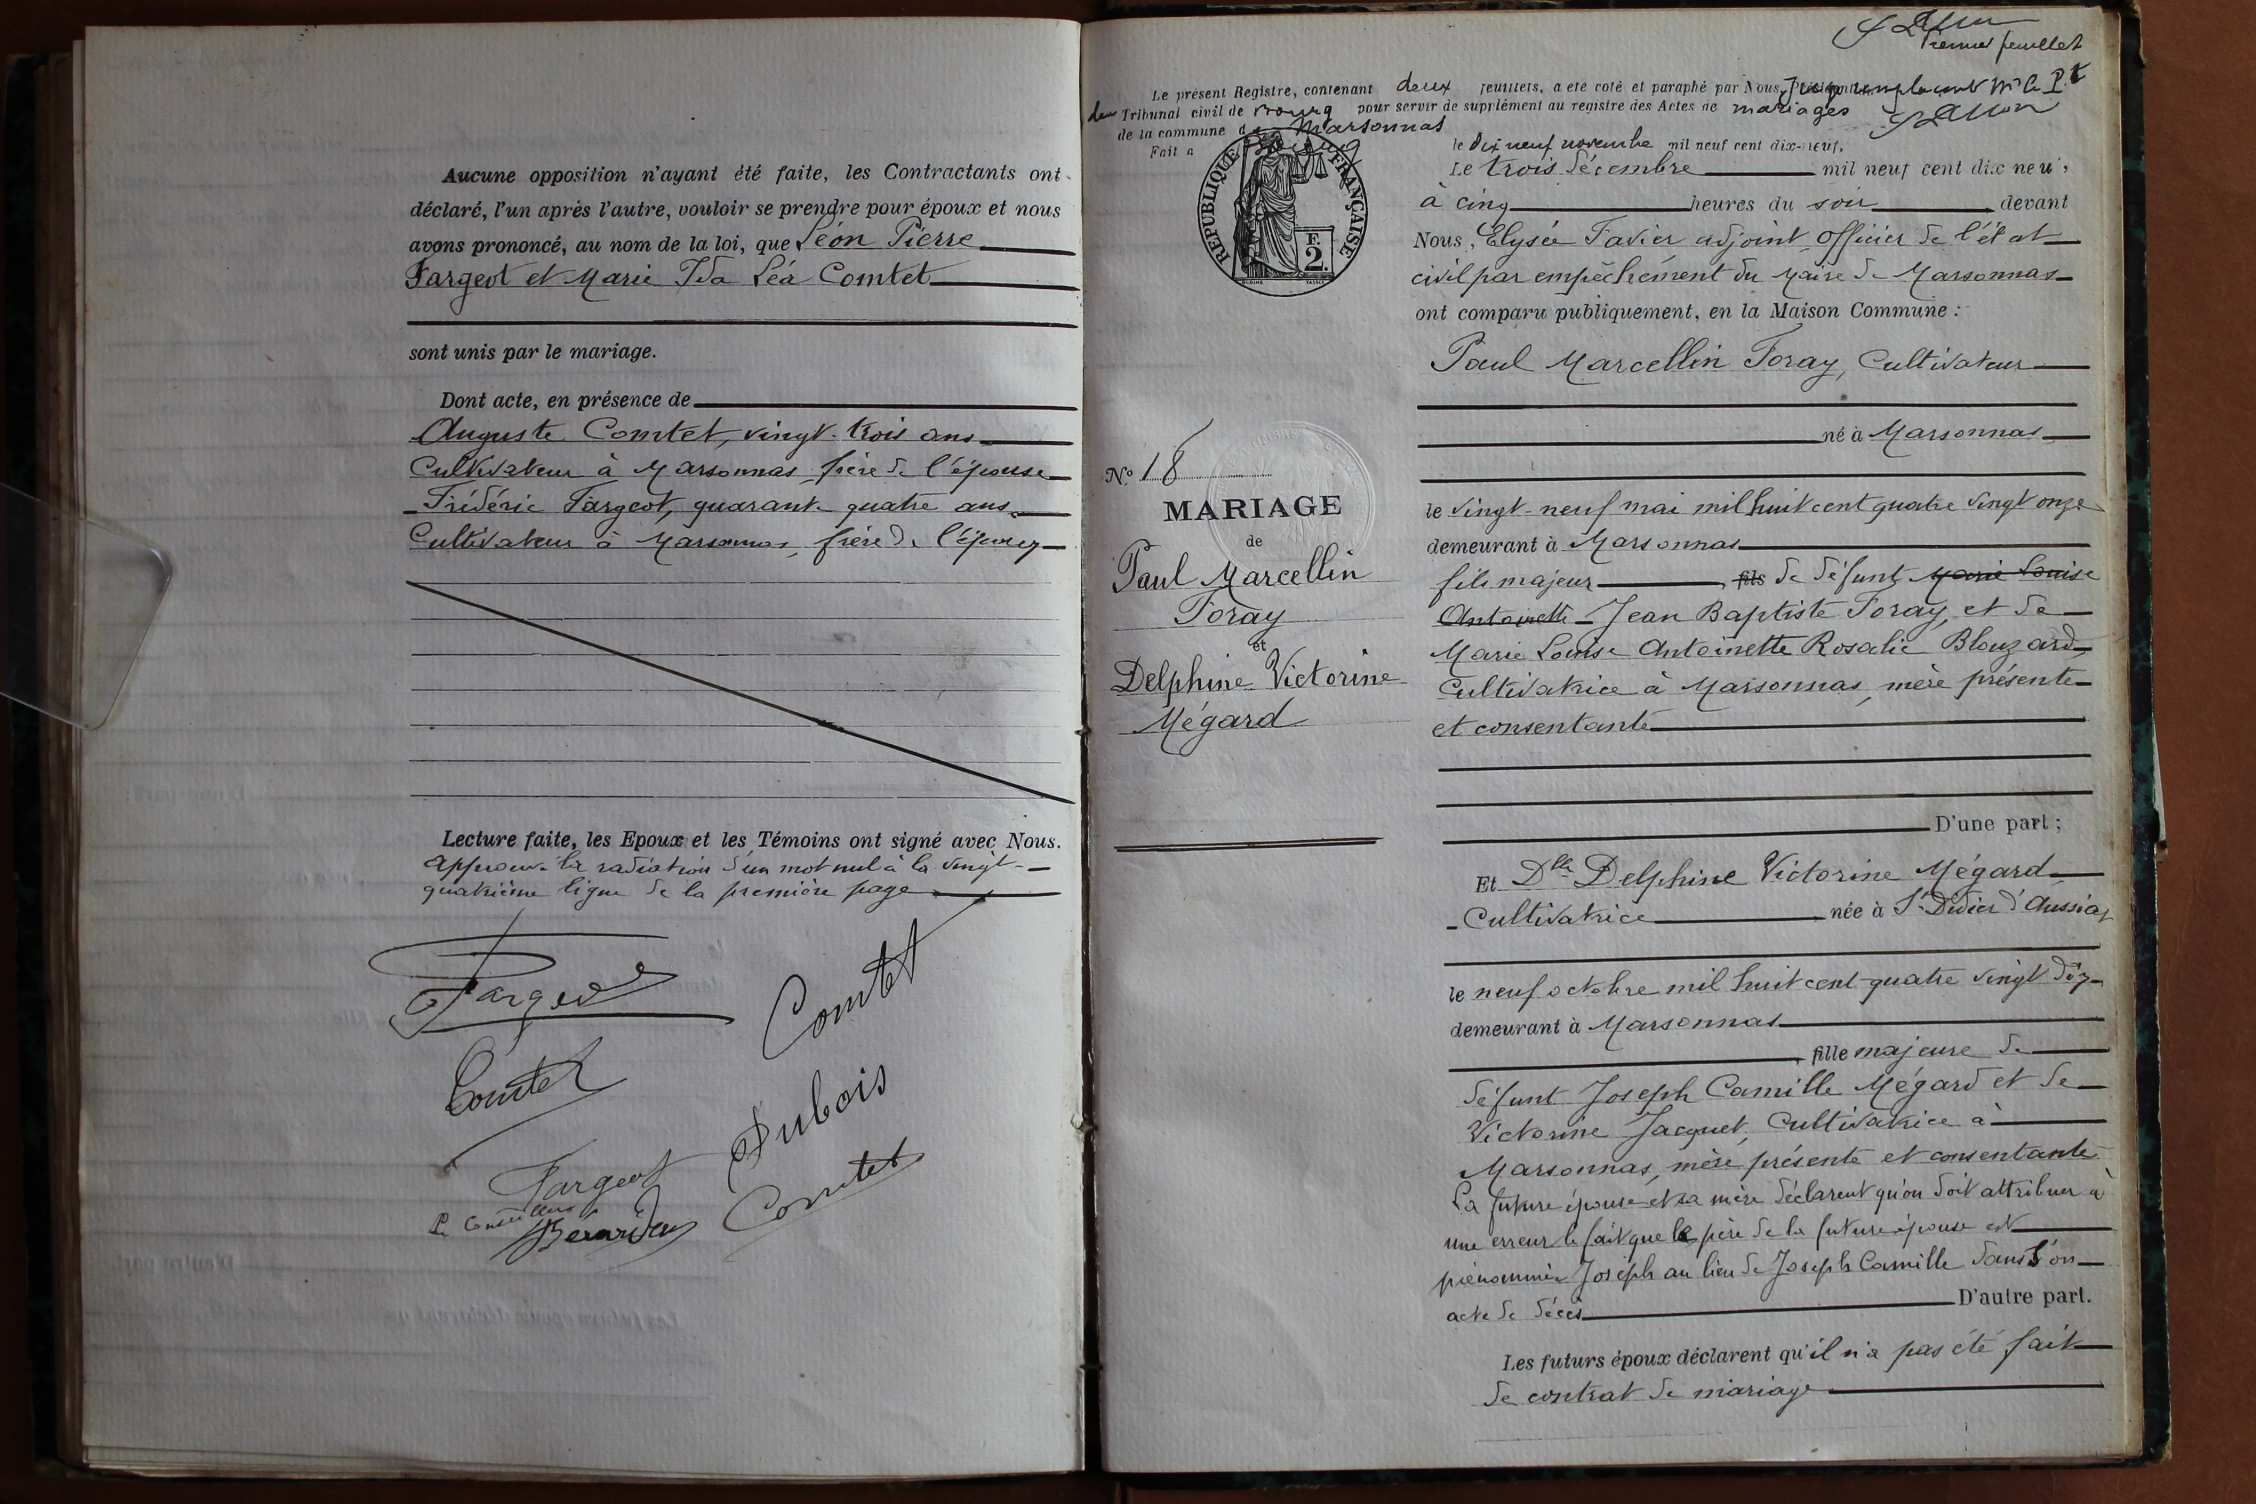 Aucune opposition n'ayant été faite, les Contractants ont
déclaré, l'un après l'autre, vouloir se prendre pour époux et nous
avons prononcé, au nom de la loi, que Léon Pierre
Fargeot et Marie Ida Léa Comtet
sont unis par le mariage.
Dont acte, en présence de
Auguste Comtet, vingt-trois ans
Cultivateur à Marsonnas, frère de l'épouse
Frédéric Fargeot, quarante quatre ans
Cultivateur à Marsonnas, frère de l'époux
Lecture faite, les Epoux et les Témoins ont signé avec Nous.
approuvé la radiation d'un mot nul à la vingt-
quatrième ligne de la première page
Fargeot
Comtet
Comtet
Dubois
Fargeot
Comtet
Premier feuillet
Le présent Registre, contenant deux feuillets, a été coté et paraphé par Nous,
Tribunal civil de Bourg pour servir de supplément au registre des Actes de mariages
de la commune de Marsonnas
Fait à Bourg le dix neuf novembre mil neuf cent dix-neuf.
RÉPUBLIQUE FRANÇAISE
F.
2.
Le trois décembre mil neuf cent dix neuf,
à cinq heures du soir, devant
Nous, Elysée Favier adjoint, officier de l'état
civil par empêchement du Maire de Marsonnas
ont comparu publiquement, en la Maison Commune :
Paul Marcellin Foray, Cultivateur
né à Marsonnas
le vingt-neuf mai mil huit cent quatre vingt onze
demeurant à Marsonnas
fils majeur, fils de défunt Marie Louise
Antoinette Jean Baptiste Foray, et de
Marie Louise Antoinette Rosalie Blouzard,
Cultivatrice à Marsonnas, mère présente
et consentante
D'une part ;
N.º 18
MARIAGE
de
Paul Marcellin
Foray
et
Delphine Victorine
Mégard
Et Dlle Delphine Victorine Mégard
Cultivatrice née à St Didier d'Aussiat
le neuf octobre mil huit cent quatre vingt dix
demeurant à Marsonnas
, fille majeure de
défunt Joseph Camille Mégard et de
Victorine Jacquet, Cultivatrice à
Marsonnas, mère présente et consentante
La future épouse et sa mère déclarent qu'on doit attribuer à
une erreur le fait que le père de la future épouse est
prénommé Joseph au lieu de Joseph Camille dans son
acte de décès D'autre part.
Les futurs époux déclarent qu'il n'a pas été fait
de contrat de mariage